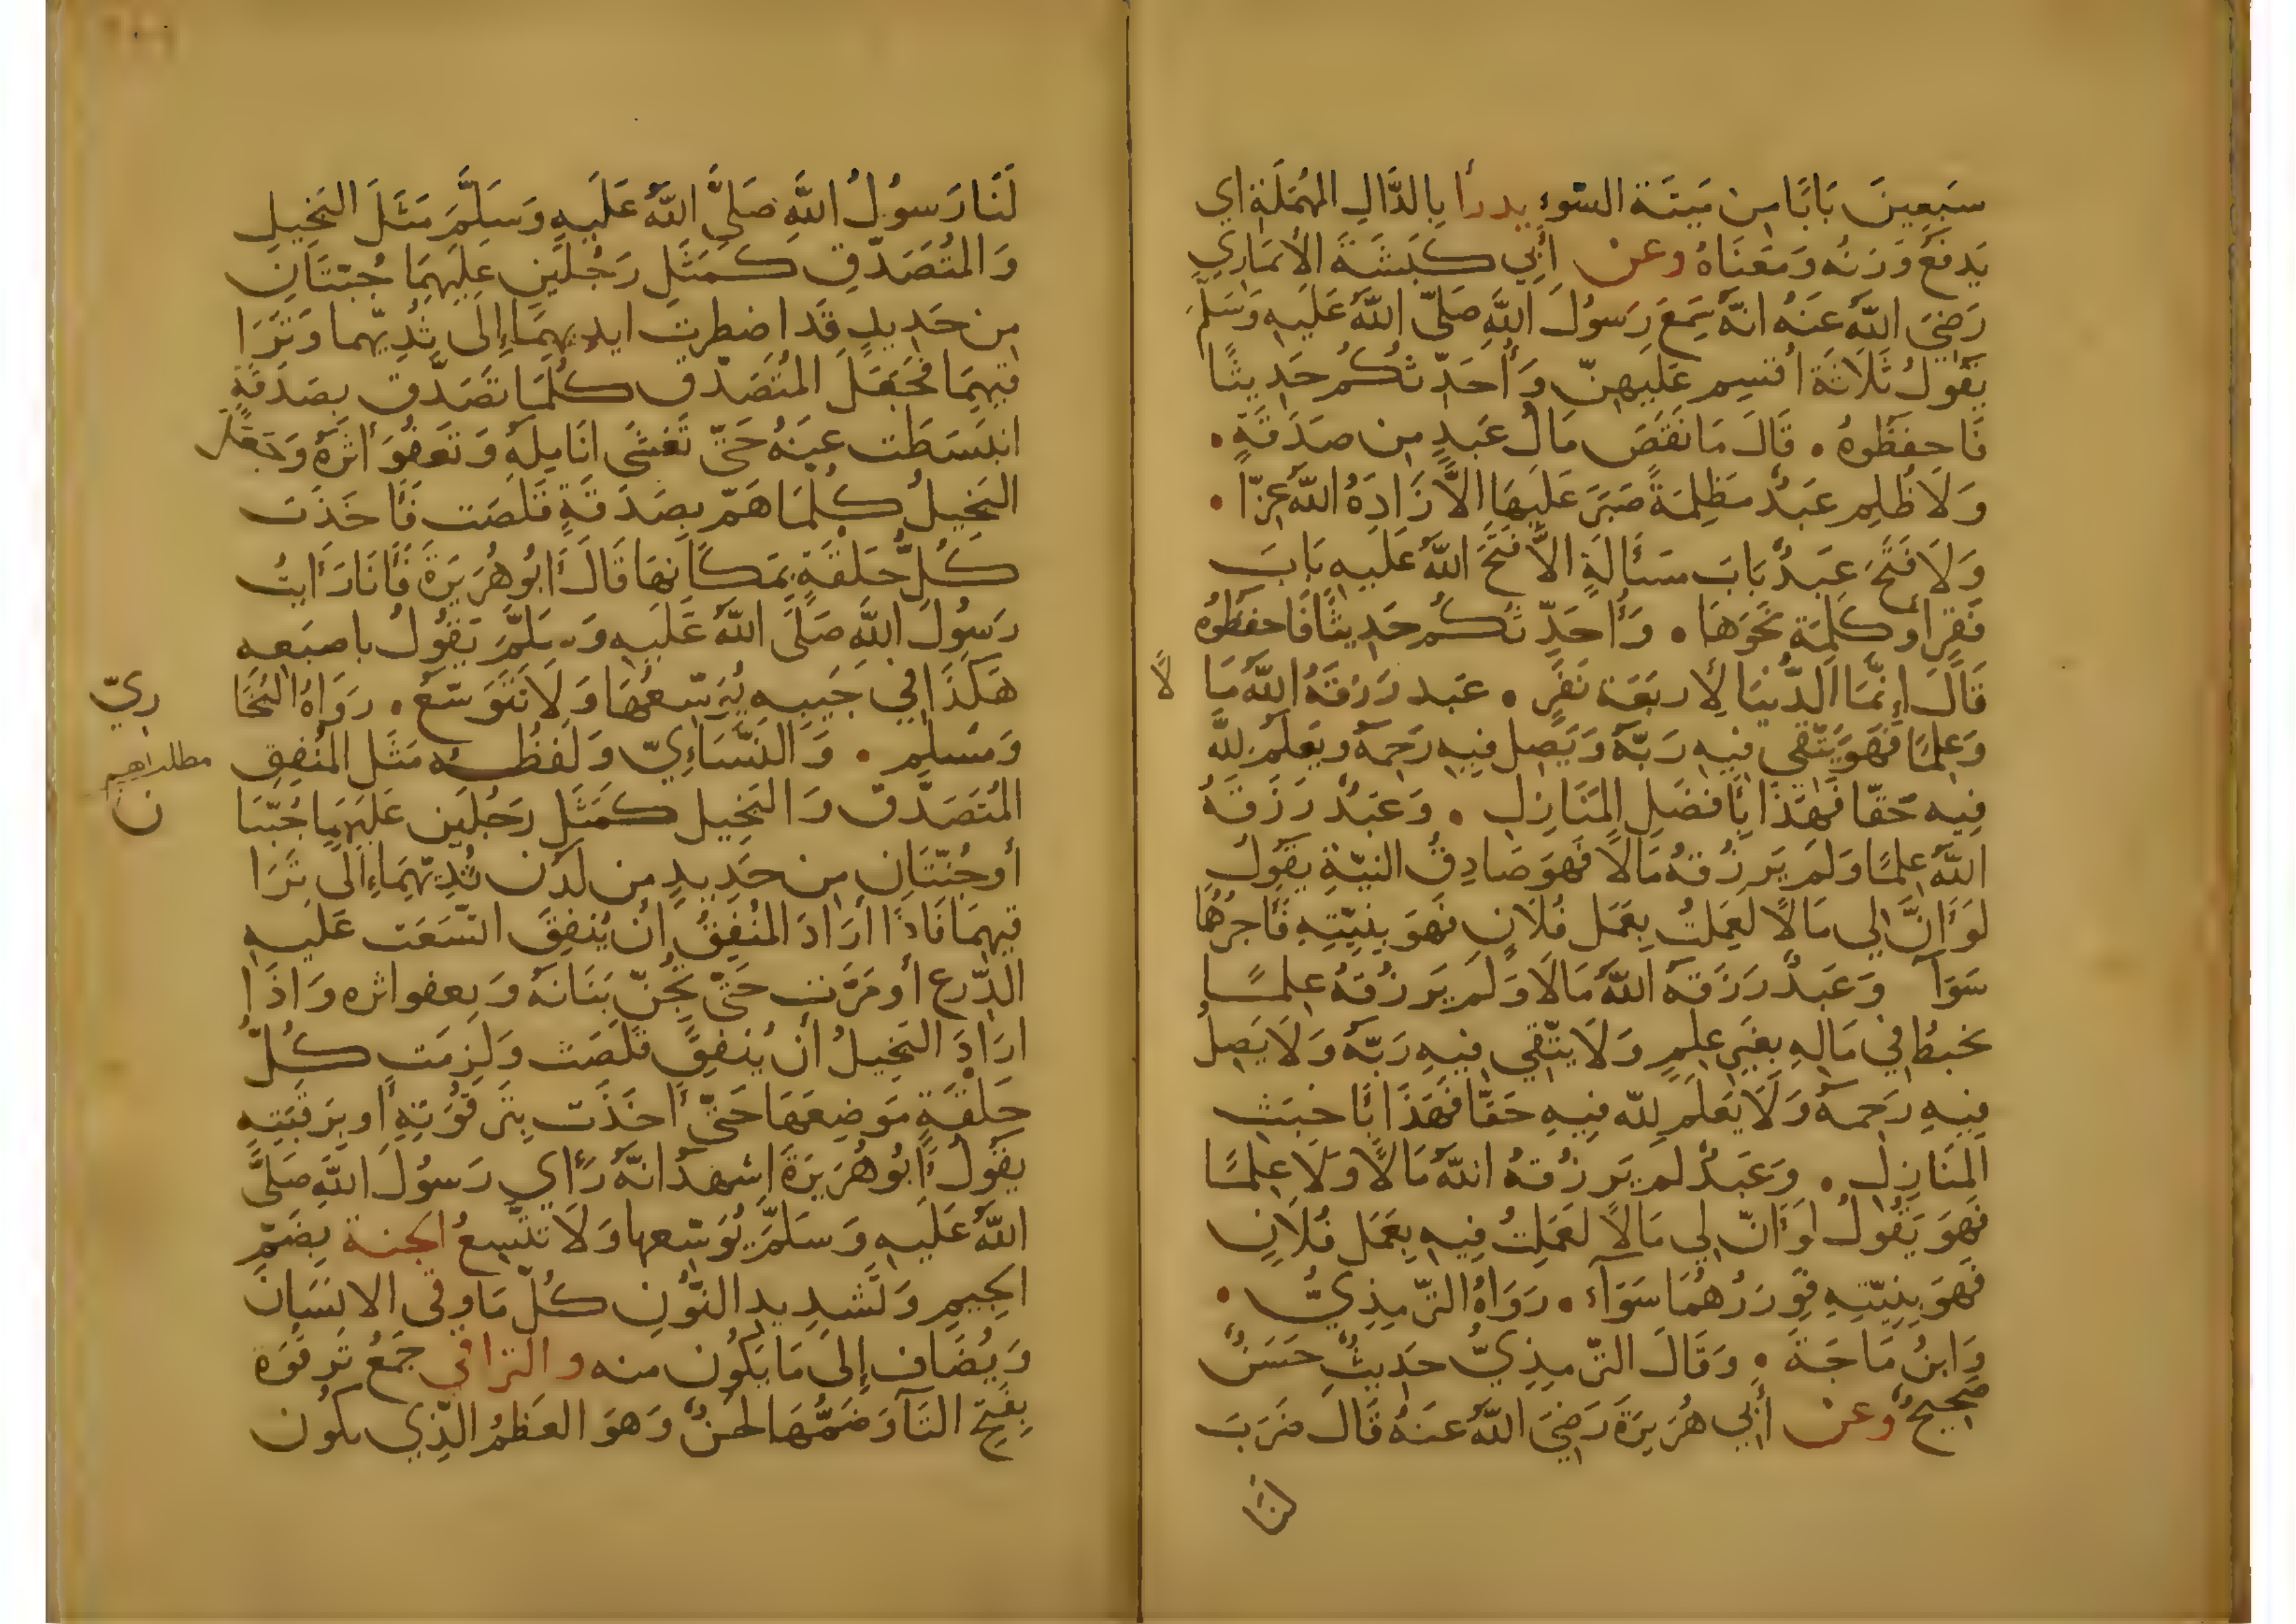 سَبعِينَ بَابًا مِن مَيتَة السّوءِ يدرأ بِالدَّالِ المُهمَلَةِ اي
يَدفَعُ وَزنُه وَمَعنَاهُ وعن أَبِي كَبشَةَ الأَنمَارِي
رَضِيَ اللّهُ عَنهُ انهُ سَمِعَ رَسُولَ اللَّهِ صَلّى اللّهُ عَلَيهِ وَسَلَّمَ
يَقُولُ ثَلاثَة أُقسِم عَلَيهِنّ وَأُحَدّثكُم حَدِيثًا
فَاحفَظُوهُ . قَالَ مَا نَقَصَ مَالُ عَبدٍ مِن صَدَقَةٍ .
وَلَا ظُلِم عَبدٌ مَظلِمَةً صَبَرَ عَلَيهَا الاَّ زَادَهُ اللّهُ عِزّا .
وَلَا فَتَحَ عَبدٌ بَابَ مَسَأَلَةٍ الاَّ فَتَحَ اللّهُ عَلَيهِ بَابَ
فَقرٍ اَو كَلِمَة نَحوَهَا . وَأُحَدّثكُم حَدِيثًا فَاحفَظُوهُ
قَالَ اِنَّمَا الدُّنيَا لِأَربَعَة نَفَرٍ . عَبد رَزَقَهُ اللّهُ مَالًا
وَعِلمًا فَهوَ يَتَّقِي فِيهِ رَبّهُ وَيَصِل فِيهِ رَحِمهُ وَيَعلَم لِلّهِ
فِيهِ حَقّا فَهَذَا بِأَفضَلِ المَنَازِلِ . وَعَبدٌ رَزَقَهُ
اللّهُ عِلمًا وَلَم يَرزُقهُ مَالاً فَهوَ صَادِقُ النيّةِ يَقُولُ
لَو أَنَّ لِي مَالًا لَعَمِلتُ بِعَمَل فُلَانٍ فَهوَ بِنِيّتِهِ فَأَجرُهُمَا
سَوَآ وَعَبدٌ رَزَقَهُ اللّهُ مَالًا وَلَم يَرزُقهُ عِلمًا
يخبطُ في مَالِهِ بِغَيرِ عِلمٍ وَلَا يتّقِي فِيهِ رَبّهُ وَلَا يَصِلُ
فِيهِ رَحِمهُ وَلَا يَعلَم لِلّه فِيهِ حَقّا فَهَذَا بِأَخبَثِ
المَنَازِلِ . وَعَبدٌ لَم يَرزُقهُ اللّهُ مَالًا وَلَا عِلمًا
فَهوَ يَقُولُ لَو أَنّ لِي مَالاً لَعَمِلتُ فِيهِ بِعَمَل فُلَانٍ
فَهوَ بِنِيّتِهِ فَوِزرُهُمَا سَوَآء . رَوَاهُ التّرمِذِيُّ .
وَابنُ مَاجَةَ . وَقَالَ التّرمِذِيُّ حَدِيثٌ حَسَنٌ
صَحِيحٌ وعن أَبِي هُرَيرَةَ رَضِيَ اللّهُ عَنهُ قَالَ ضَرَبَ
لَنَا
لَنَا رَسُولُ اللَّهِ صَلَّى اللّهُ عَلَيهِ وَسَلَّمَ مَثَلَ البَخِيلِ
وَالمُتَصَدّقِ كَمَثَلِ رَجُلَينِ عَلَيهِمَا جُبّتَانِ
مِن حَدِيدٍ قَد اضطرت ايديهِمَا إِلَى ثُدِيّهما وَتَرَا
قيهِمَا فَجَعَلَ المُتَصَدّق كُلَّمَا تَصَدّق بِصَدَقَةٍ
انبَسَطَت عَنهُ حَتّى تَغشَى انَامِلَهُ وَتَعفُوَ أَثَرَهُ وَجَعَلَ
البَخِيلُ كُلَّمَا هَمّ بِصَدَقَةٍ قَلَصَت وَأَخَذَت
كُلُّ حَلقَةٍ بِمَكَانِهَا قَالَ أَبُو هُرَيرَةَ فَأَنَا رَأَيتُ
رَسُولَ اللَّهِ صَلَّى اللّهُ عَلَيهِ وَسَلَّمَ يَقُولُ باصبَعهِ
هَكَذَا فِي جَيبهِ يُوَسّعُهَا وَلَا تَتَوَسّعُ . رَوَاهُ البُخَا
رِيّ
وَمُسلِم . وَالنَّسَاءِيّ وَلَفظُهُ مَثَل المُنفِقِ
مطلب اهم
المُتَصَدّق وَالبَخِيل كَمَثَلِ رَجُلَينِ عَلَيهِمَا جُبّتَا
ن
أو جُنّتَانِ مِن حَدِيدٍ مِن لَدُن ثُدِيّهِمَا اِلَى تَرَا
قيهِمَا فَاذَا أَرَادَ المُنفِقُ أَن يُنفِقَ اتّسَعَت عَلَيهِ
الدِّرع أو مَرَّت حَتّى تُجِنّ بَنَانَهُ وَيعفو اثره وَاذَا
ارَادَ البَخِيلُ أَن يُنفِقَ قَلَصَت وَلَزِمَت كُلُّ
حَلقَةٍ مَوضِعَهَا حَتّى أَخَذَت بِتَرقُوَتِهِ أَو بِرَقَبَتِهِ
يَقُولُ أَبُو هُرَيرَةَ اشهدُ انَّهُ رَأَي رَسُولَ اللَّهِ صَلَّى
اللّهُ عَلَيهِ وَسَلَّمَ يُوَسّعها وَلَا تَتّسِعُ الجنة بِضَمّ
الجِيمِ وَتَشدِيدِ النُّونِ كُلّ مَا وقى الانسَان
وَيُضَاف إِلَى مَا يَكُون منه والتراقي جَمعُ تَرقُوَة
بِفَتحِ التَآ وَضَمُّهَا لَحنٌ وَهوَ العَظمُ الَّذِي يكُون